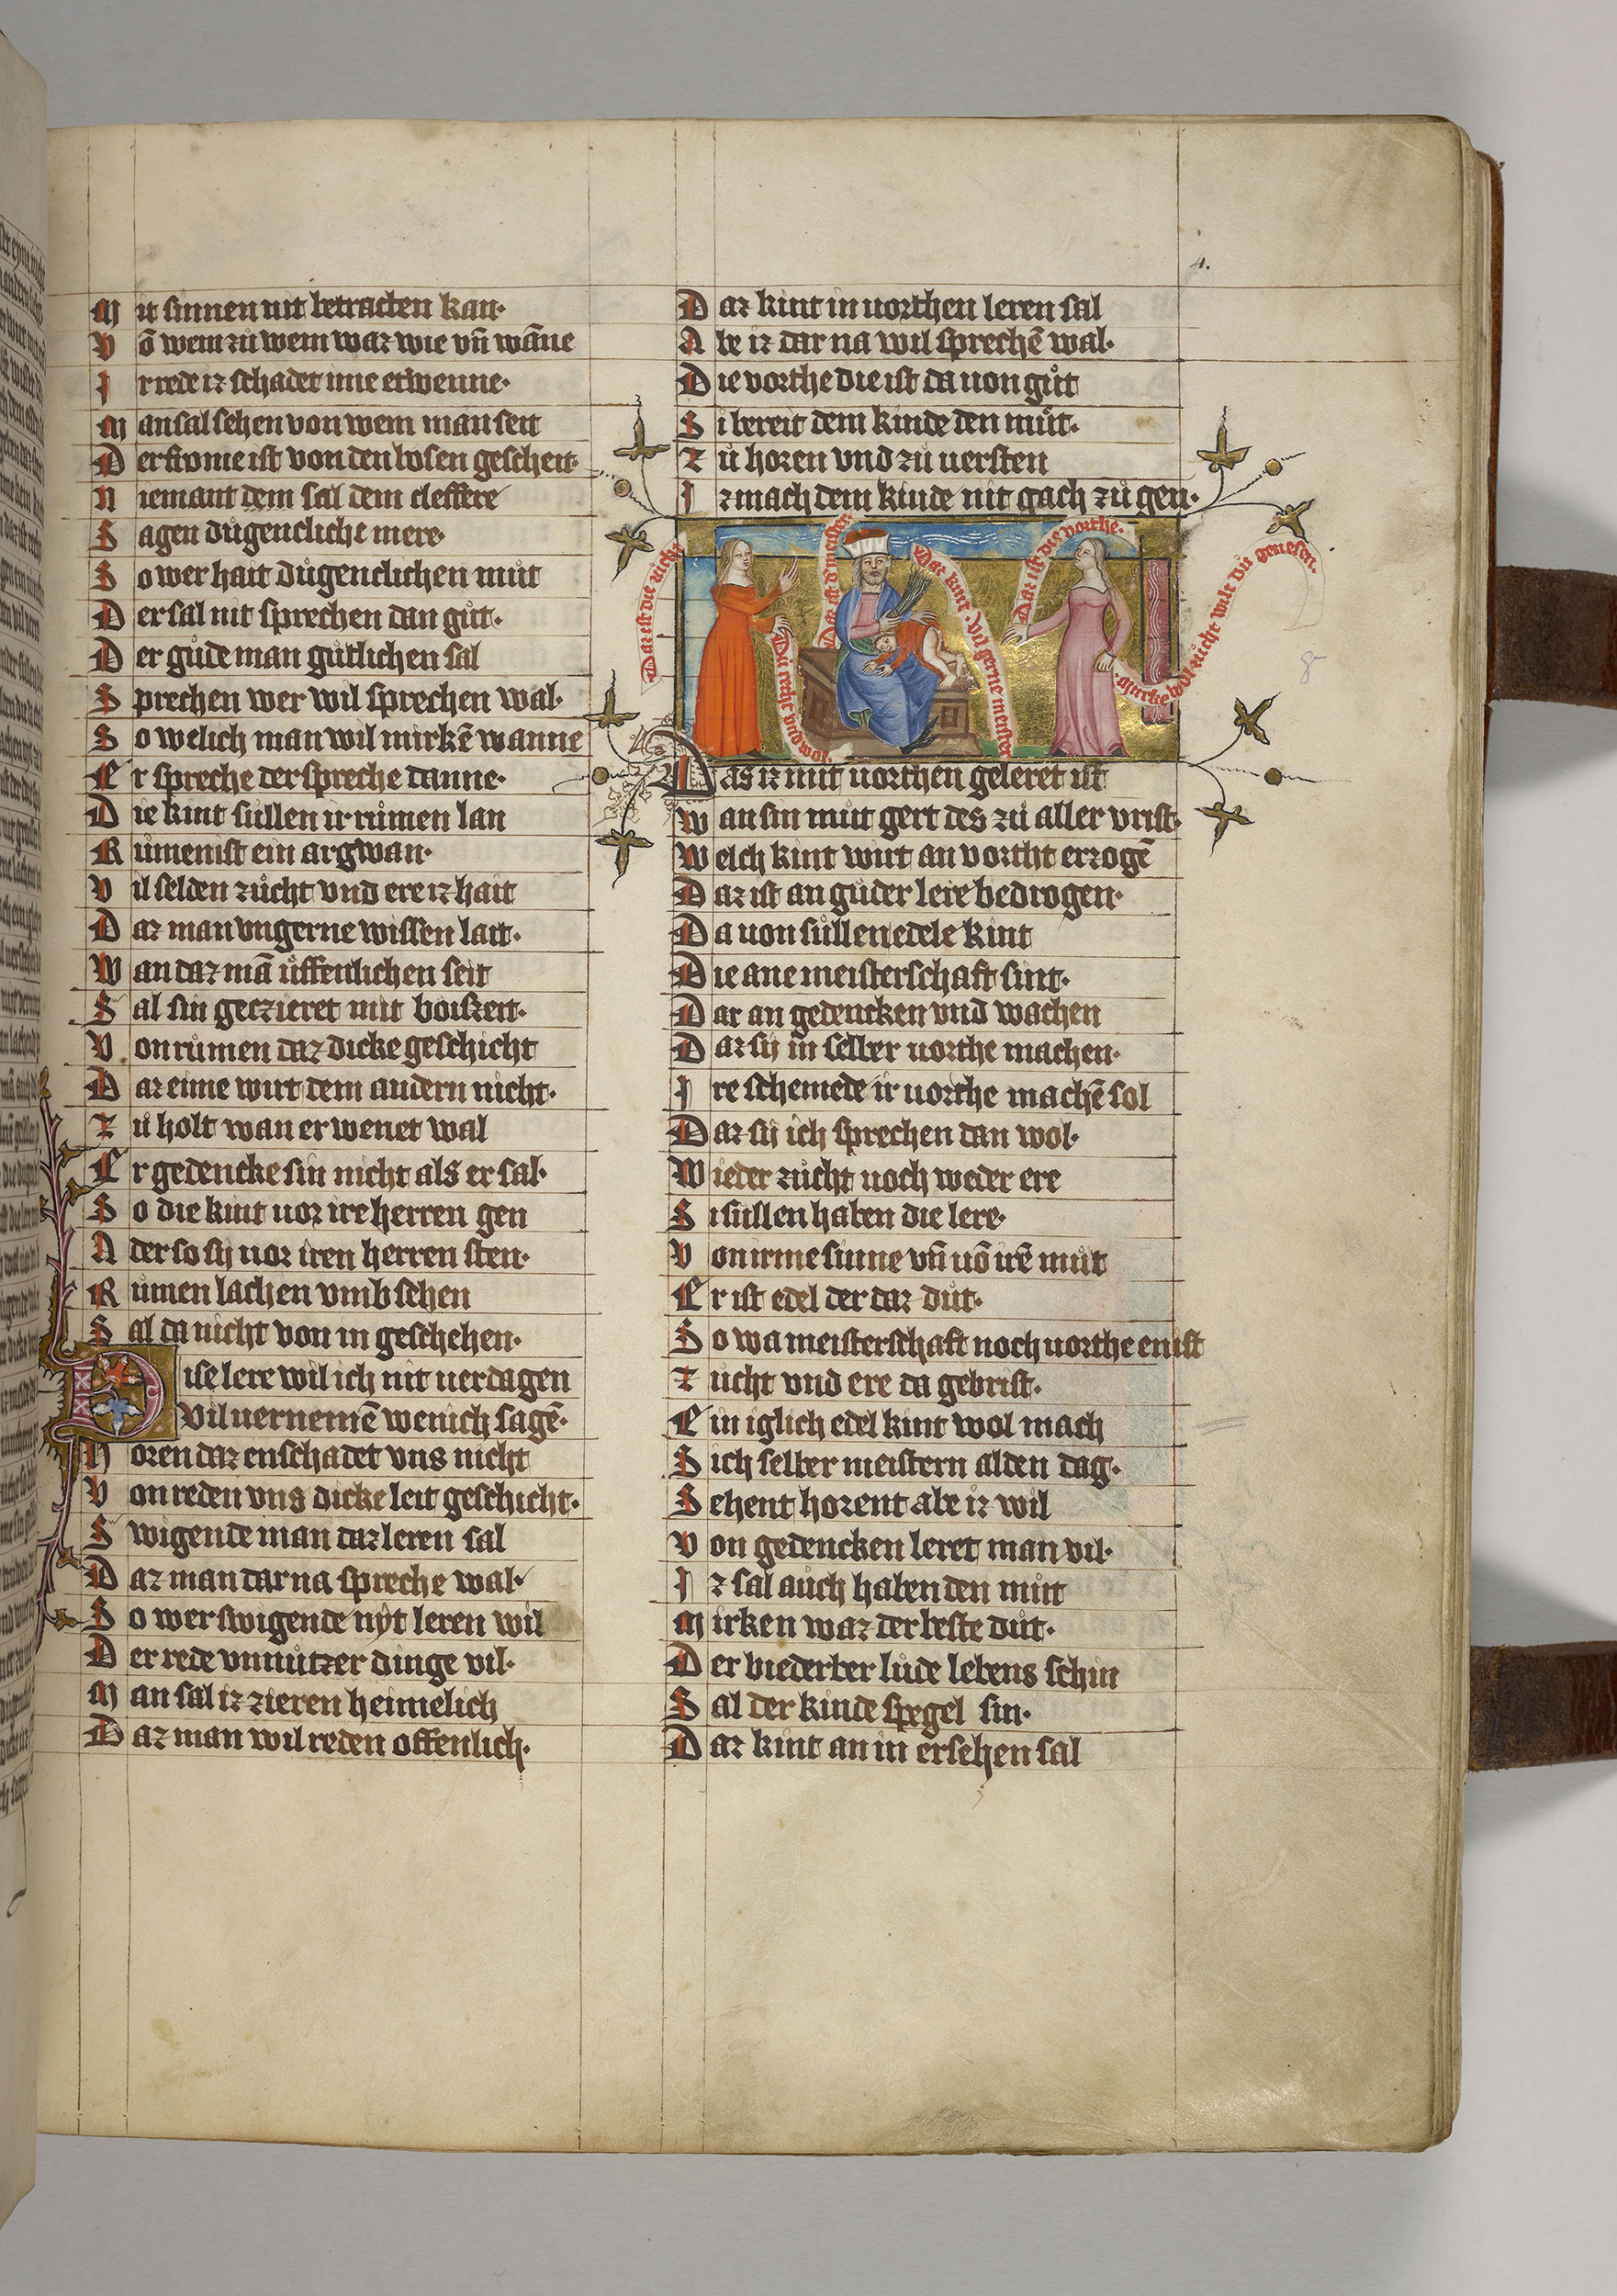 Mit sinnen nit betrachten kan·
Võ wem zů wem waz wie vñ wãne
Ir rede iz schadet ime etwenne·
Man sal sehen von wem man seit
Der frome ist von den bosen gescheit·
Niemant dem sal dem cleffere
Sagen důgentliche mere·
So wer hait důgenclichen můt
Der sal nit sprechen dan gůt·
Der gůde man gůtlichen sal
Sprechen wer wil sprechen wal·
So welich man wil mirkẽ wanne
Er spreche der spreche danne·
Die kint sullen ir růmen lan
Růmen ist ein argwan·
Vil selden zůcht vnd ere iz hait
Daz man vngerne wissen lait·
Wan daz mã ůffenlichen seit
Sal sin geczieret mit boiszeit·
Von růmen daz dicke geschicht
Daz eime wirt dem andern nicht·
Zů holt wan er wenet wal
Er gedencke sin nicht als er sal·
So die kint uor ire herren gen
Ader so sij uor iren herren sten·
Růmen lachen vmb sehen
Sal da nicht von in geschehen·
Dise lere wil ich nit uerdagen
Vil uernemẽ wenich sagẽ·
Horen daz enschadet vns nicht
Von reden vns dicke leit geschicht·
Swigende man daz leren sal
Daz man dar na spreche wal·
So wer swigende nyt leren wil
Der rede vnnůtzer dinge vil·
Man sal iz zieren heimelich
Daz man wil reden offenlich·
4.
Daz kint in uorthen leren sal
Abe iz dar na wil sprechẽ wal·
Die vorthe die ist da uon gůt
Si bereit dem kinde den můt·
Zů horen vnd zů uersten
Iz mach dem kinde nit gach zů gen·
Daz ist die zucht
Du recht vnd wol
Daz ist d meister
Daz kint · vil gerne meister
Daz ist die vorthe·
mirke wol zucht wilt du genesen·
Was iz mit uorthen geleret ist
Wan sin můt gert des zů aller vrist·
Welch kint wirt an vortht erzogẽ
Daz ist an gůder lere bedrogen·
Da uon sůllen edele kint
Die ane meisterschaft sint·
Dar an gedencken vnd wachen
Daz sij in selber uorthe machen·
Ire schemede ir uorthe machẽ sol
Daz sij ich sprechen dan wol·
Wieder zůcht noch weder ere
Si sullen haben die lere·
Von irme sinne vñ uõ irẽ můt
Er ist edel der daz důt·
So wa meisterschaft noch uorthe enist
Zucht vnd ere da gebrist·
Ein iglich edel kint wol mach
Sich selber meistern alden dag·
Sehent horent abe iz wil
Von gedencken leret man vil·
Iz sal auch haben den můt
Mirken waz der beste důt·
Der biederber lůde lebens schin
Sal der kinde spegel sin·
Daz kint an in ersehen sal